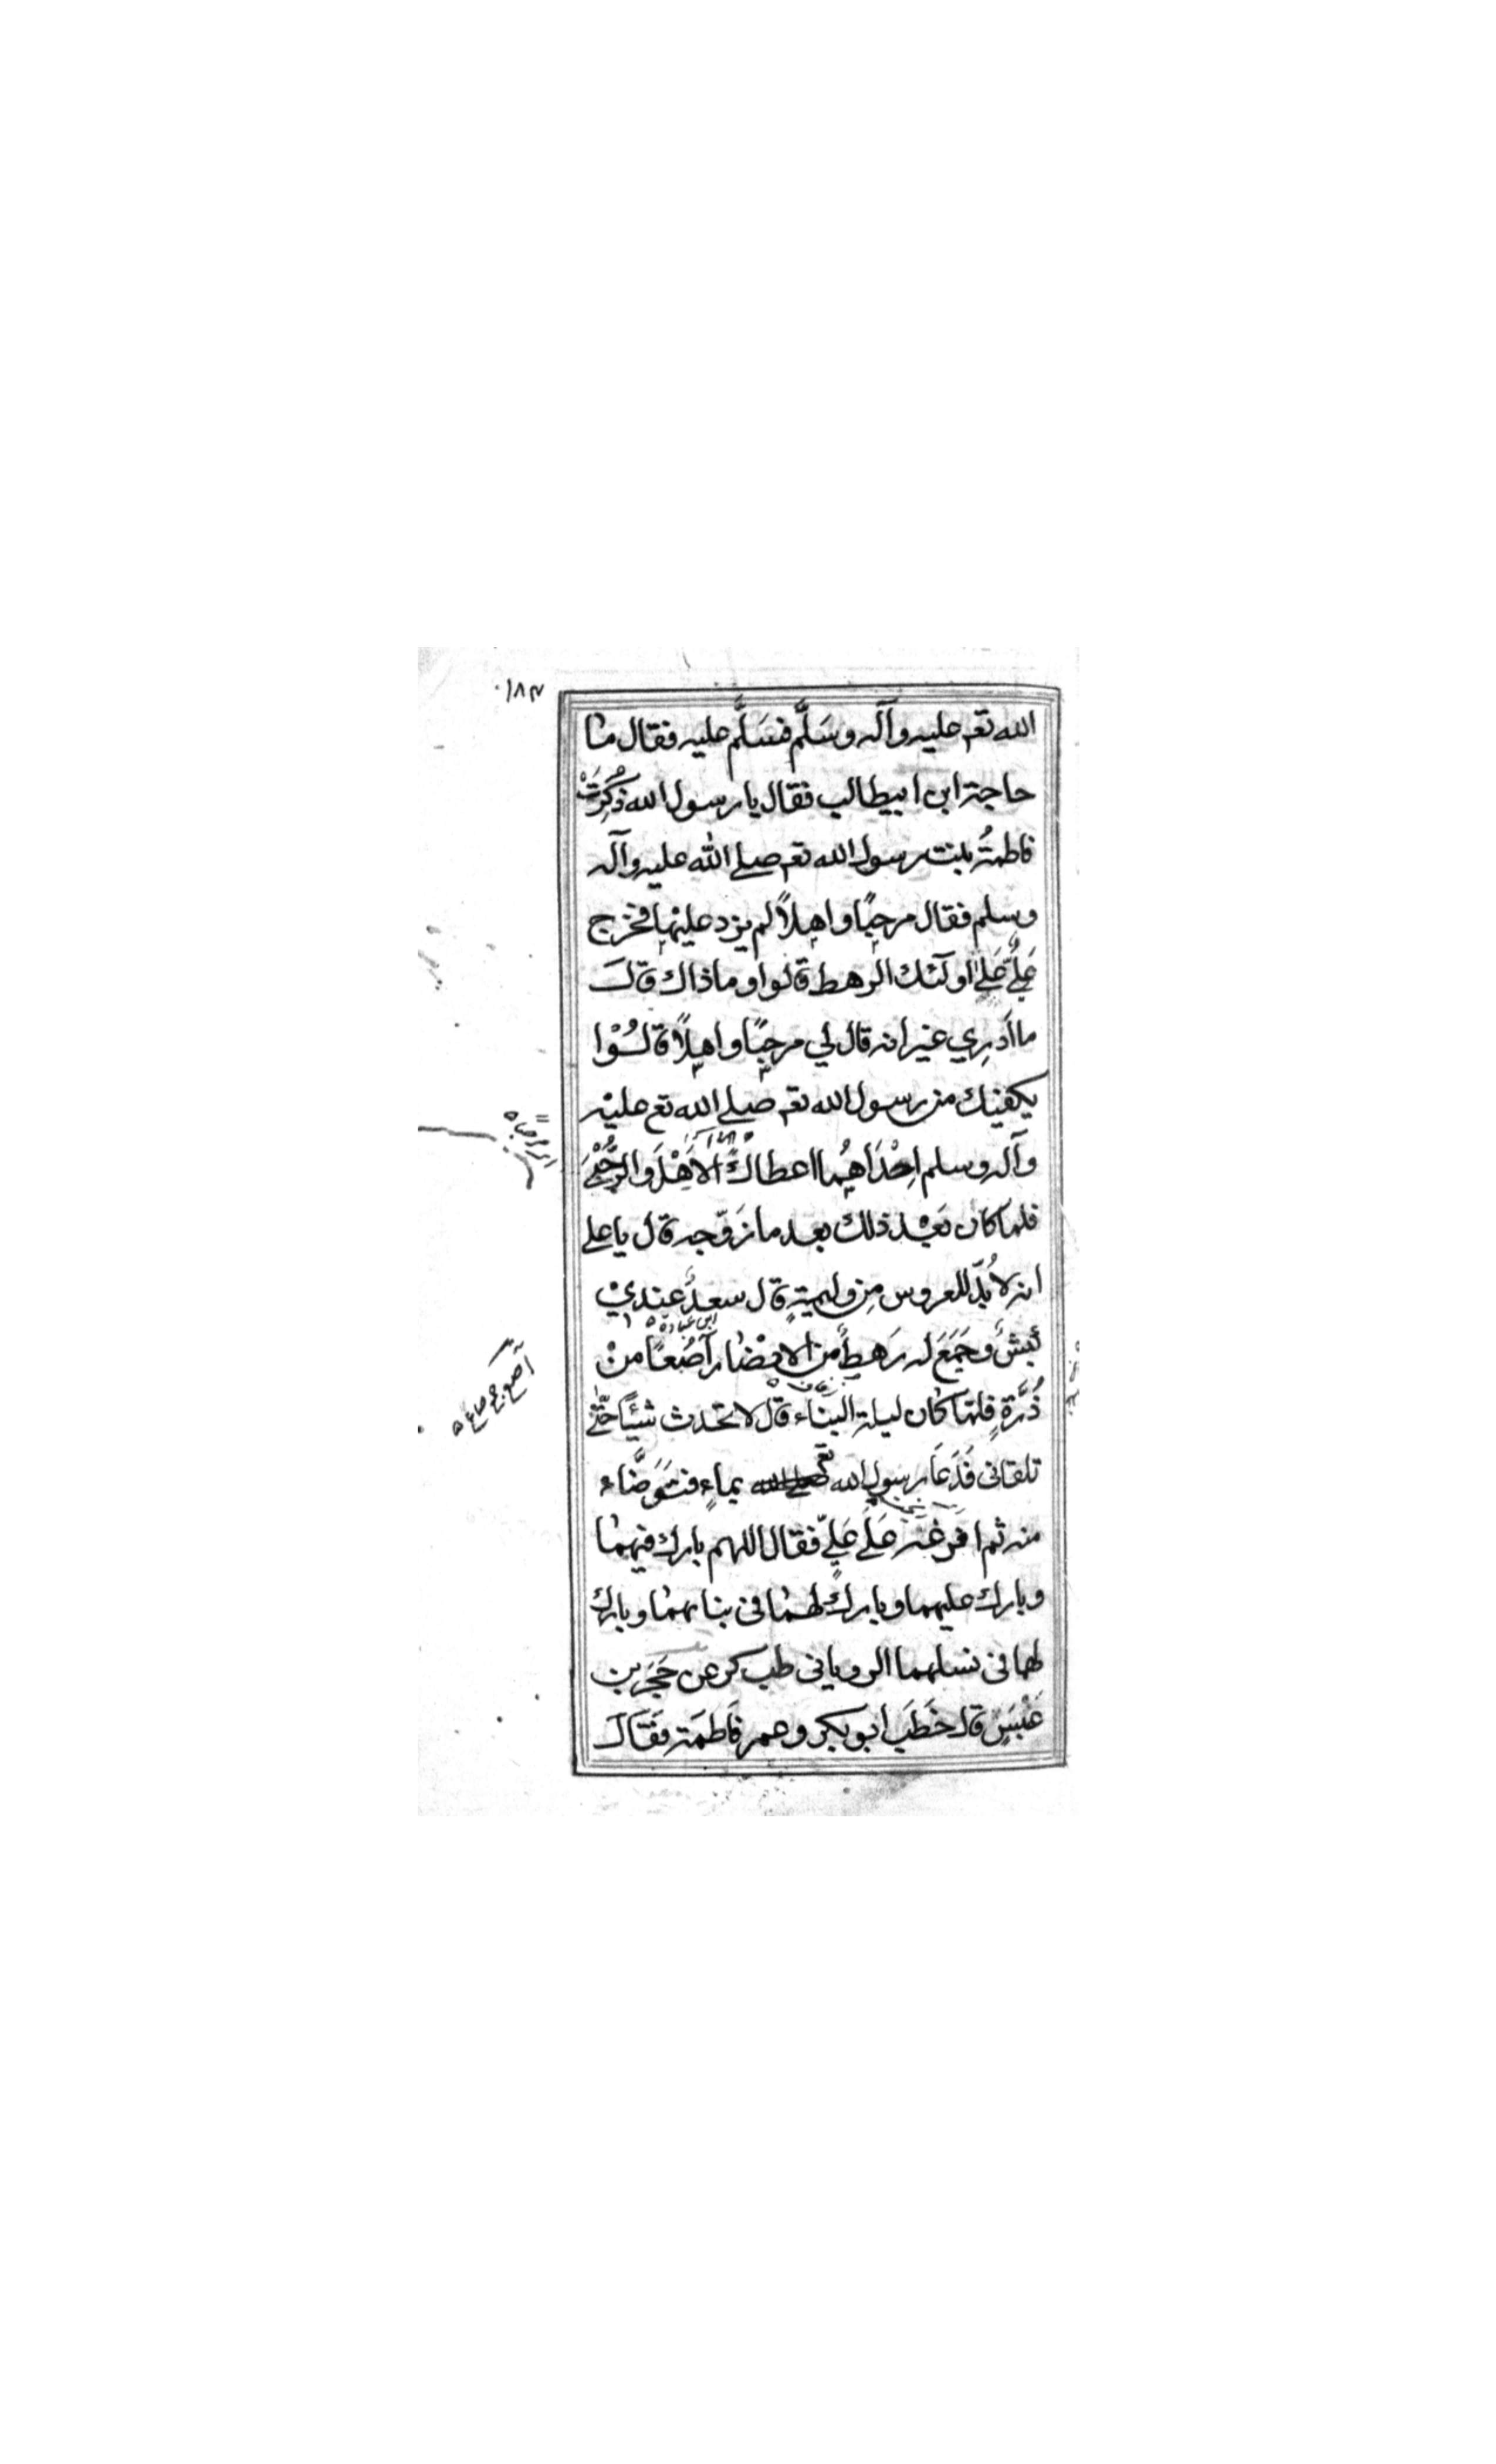 ١٨٣
الله تعم عليه وآله وسَلَّم فسَلَّم عليه فقال ما
حاجة ابن ابيطالب فقال يا رسول الله ذُكِرَتْ
فاطمةُ بنت رسول الله تعم صلى الله عليه وآله
وسلم فقال مرحبًا واهلاً لم يزد عليها فخرج
عَلِيٌّ عَلىٰ اولئك الرهط قالوا وما ذاك قال
ما ادري غير انه قال لي مرحبًا واهلاً قالُوْا
يكفيك من رسول الله تعم صلى الله تع عليه
وآله وسلم اِحْدَاهُما اعطاك الاَهْلَ والرُّحْبَ
فلما كان بَعْد ذلك بعد ما زَوَّجه قال يا علي
انه لابُدّ للعروس مِن وليمةٍ قال سعدٌ عندي
ابن عبادة
كبشٌ وجَمَعَ له رَهطٌ من الانصار آصُعًا منْ
ذُرَةٍ فلما كان ليلة البِنَاء قال لا تحدث شيئًا حَتّٰى
تلقانى فَدَعَا رسول الله تعم بماءٍ فتَوَضَّاء
منه ثم افرغه عَلَى عَلِيّ فقال اللهم بارك فيهما
وبارك عليهما وبارك لهما فى بنائهما وبارك
لهما فى نسلهما الرويانى طب كر عن حَجَر بن
عَنْبَسٍ قال خَطَبَ ابو بكر وعمر فَاطمَة فقال
آصع جمع صاع